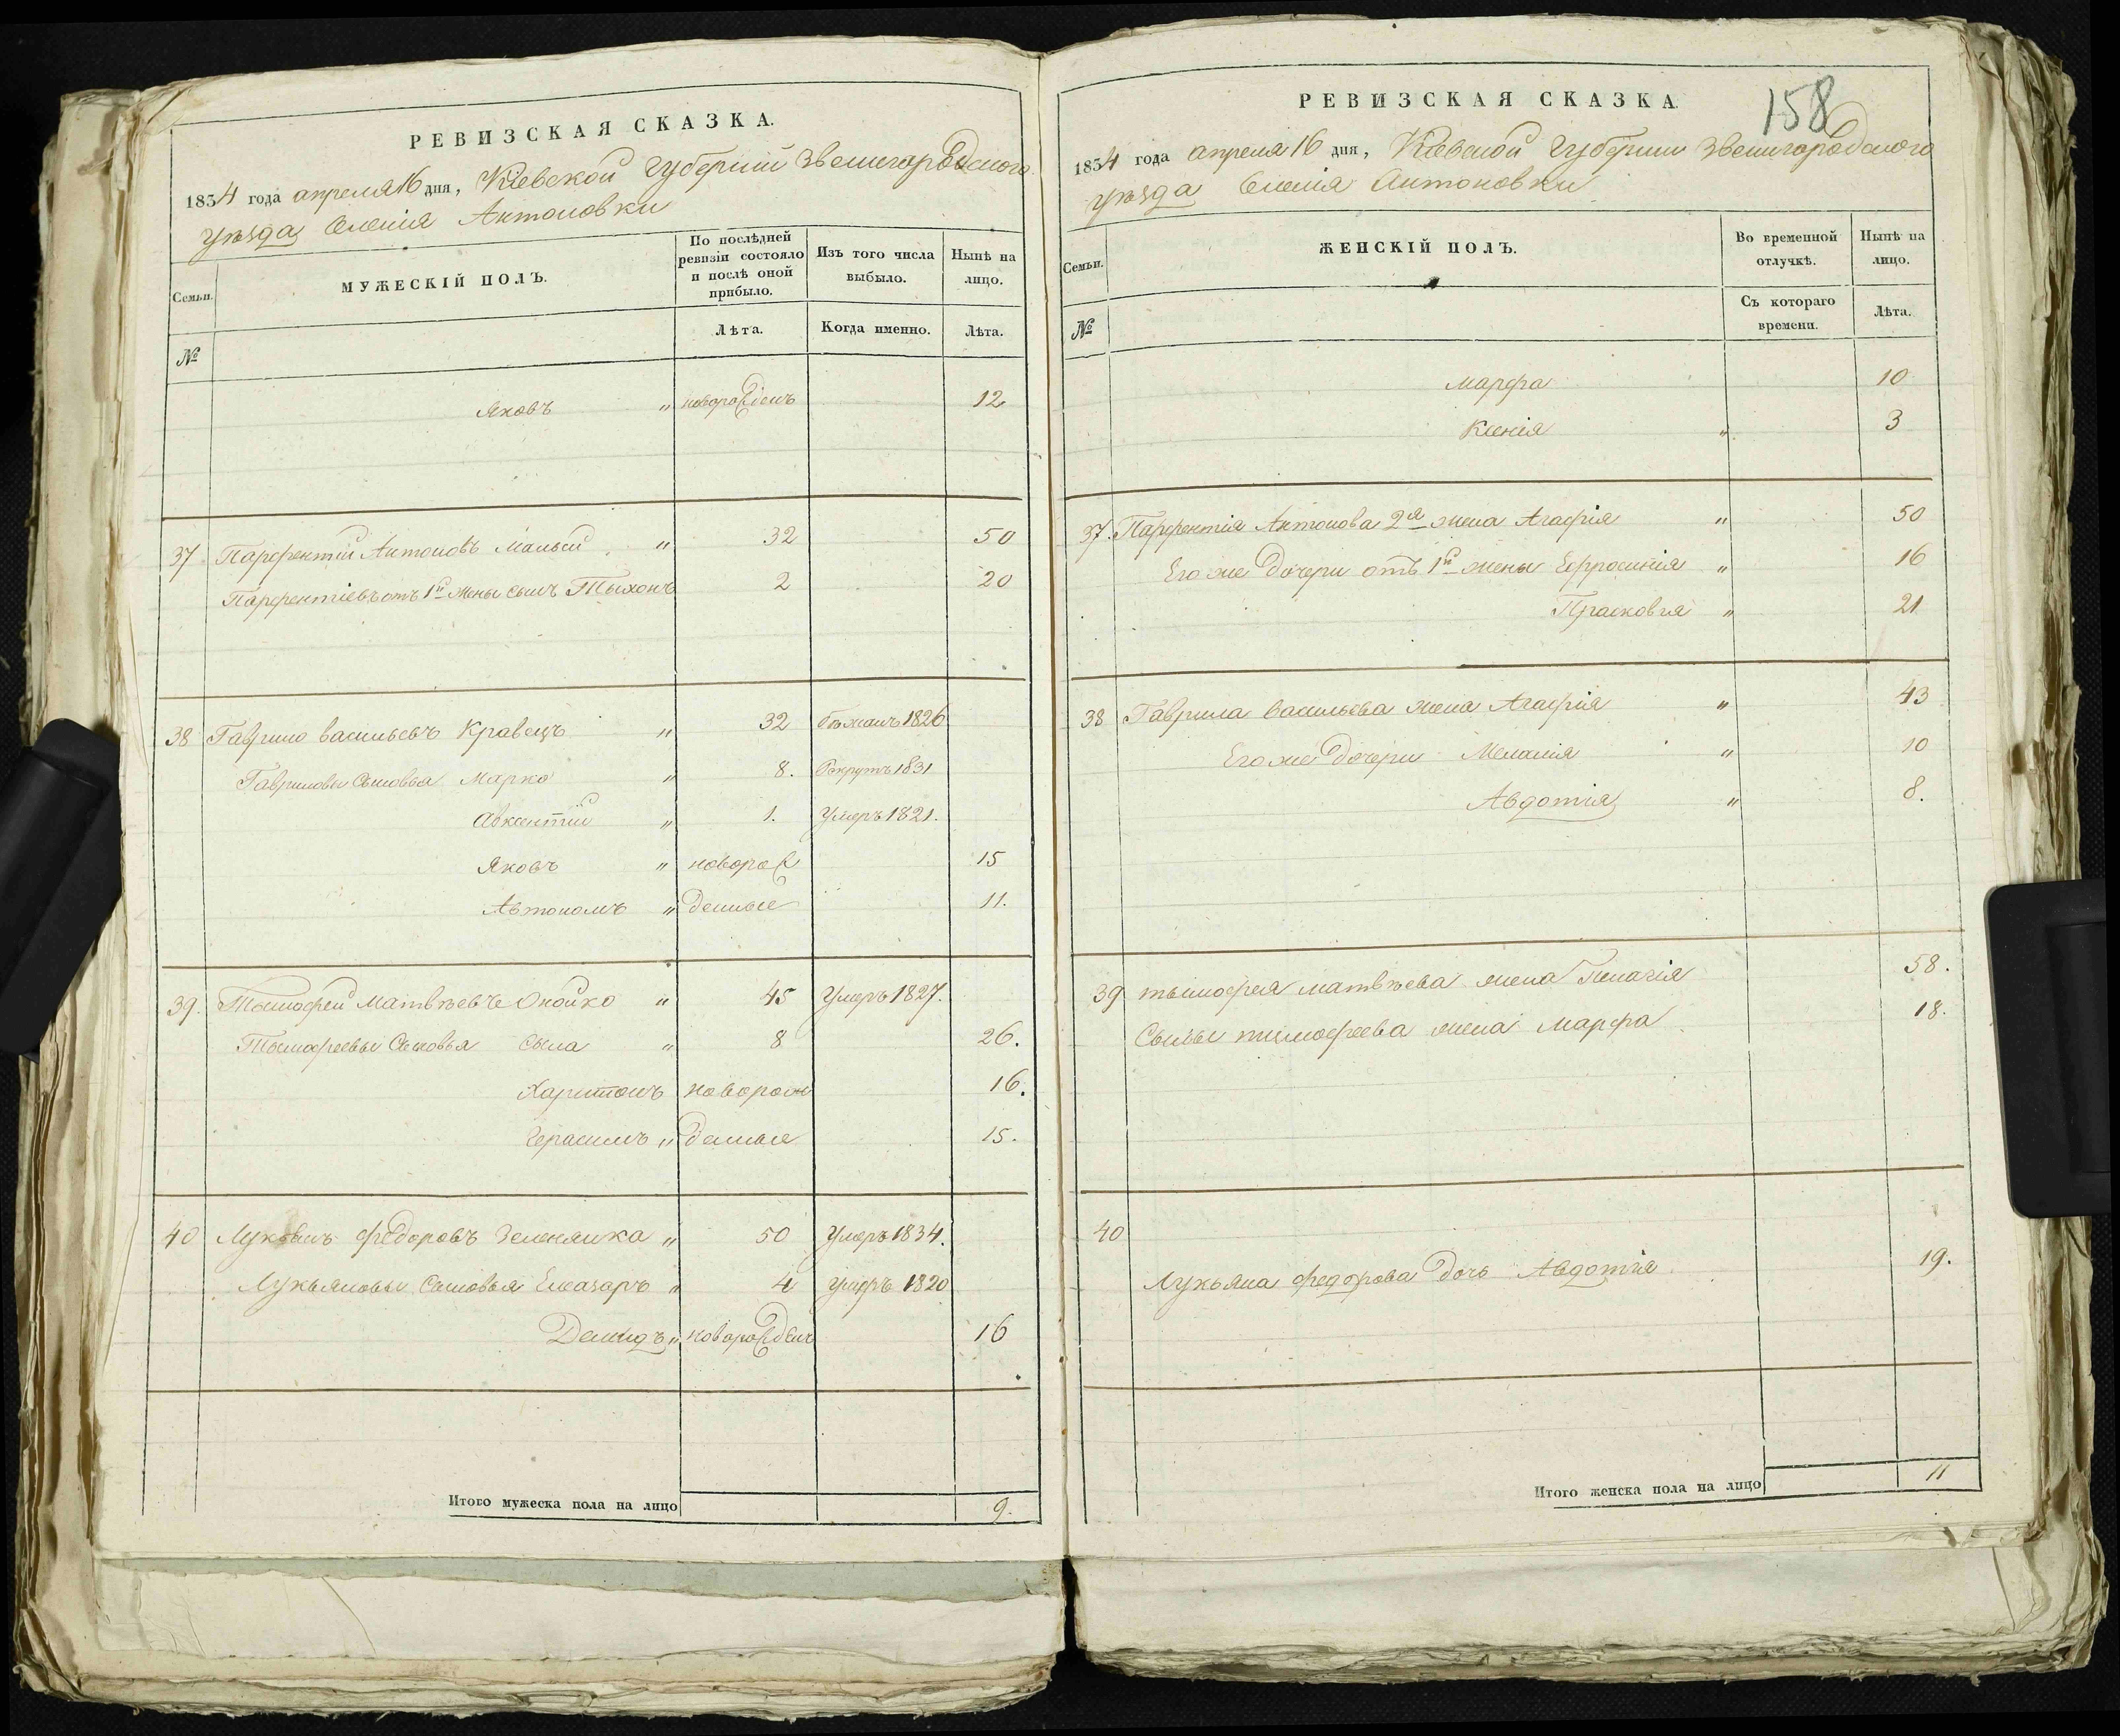 РЕВИЗСКАЯ СКАЗКА.
1834 года апреля 16 дня, Кіевской Губерніи Звенигородского
уѣзда Селенія Антоновки
Семьи.
МУЖЕСКІЙ ПОЛЪ.
По послѣдней ревизіи состояло и послѣ оной прибыло.
Изъ того числа выбыло.
Нынѣ на лицо.
№
Лѣта.
Когда именно.
Лѣта.
Яковъ " новорожденъ 12
37 Парфентій Антоновъ " 32 50
Парфентіевъ отъ 1й жены сынъ Тыхонъ 2 20
38 Гаврило Васильевъ Кравецъ " 32 бѣжалъ 1826
Гавриловы Сыновья Марко " 8. Рекрутъ 1831
Авксентій " 1. Умеръ 1821.
Яковъ " новорож 15
Автономъ " денные 11.
39. Тымофей Матвѣевъ " 45 Умеръ 1827.
Тымофеевы Сыновья Сыла " 8 26.
Харитонъ новорож 16.
Герасимъ " денные 15.
40 Лукьянъ Федоровъ Зеленянка " 50 Умеръ 1834.
Лукьяновы Сыновья Елеазаръ " 4 умеръ 1820
Демидъ " новорожденъ 16
Итого мужеска пола на лицо 9.
158
РЕВИЗСКАЯ СКАЗКА.
1834 года апреля 16 дня, Кіевской Губерніи Звенигородского
уѣзда Селенія Антоновки
Семьи.
ЖЕНСКІЙ ПОЛЪ.
Во временной отлучкѣ.
Нынѣ на лицо.
№
Съ котораго времени.
Лѣта.
Марфа 10
Ксенія " 3
37. Парфентія Антонова 2я жена Агафія " 50
Его же Дочери отъ 1й жены Ефросинія " 16
Прасковія " 21
38 Гаврила Васильева жена Агафія " 43
Его же Дочери Меланія " 10
Авдотія " 8.
39 тымофея матвѣева жена Пелагія 58.
Сылы тимофеева жена Марфа 18.
40
Лукьяна федорова Дочь Авдотія 19.
Итого женска пола на лицо 11